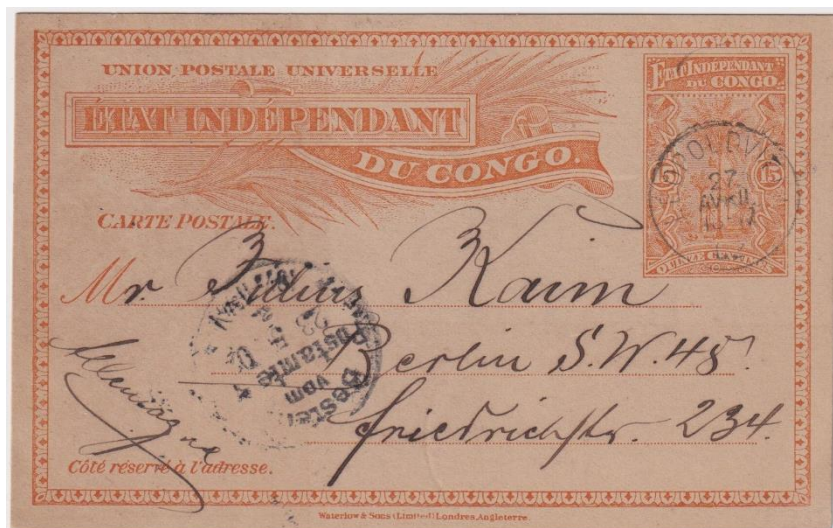 UNION POSTALE UNIVERSELLE
ÉTAT INDÉPENDANT
DU CONGO.
ÉTAT INDÉPENDANT
DU CONGO.
15 15
27
AVRIL
CARTE POSTALE.
Mr. Julius Kaim
Berlin S.W. 48.
Friedrichstr. 234.
Allemagne
Bestellt
vom
Postamte
Côté réservé à l'adresse.
Waterlow & Sons (Limited) Londres, Angleterre.